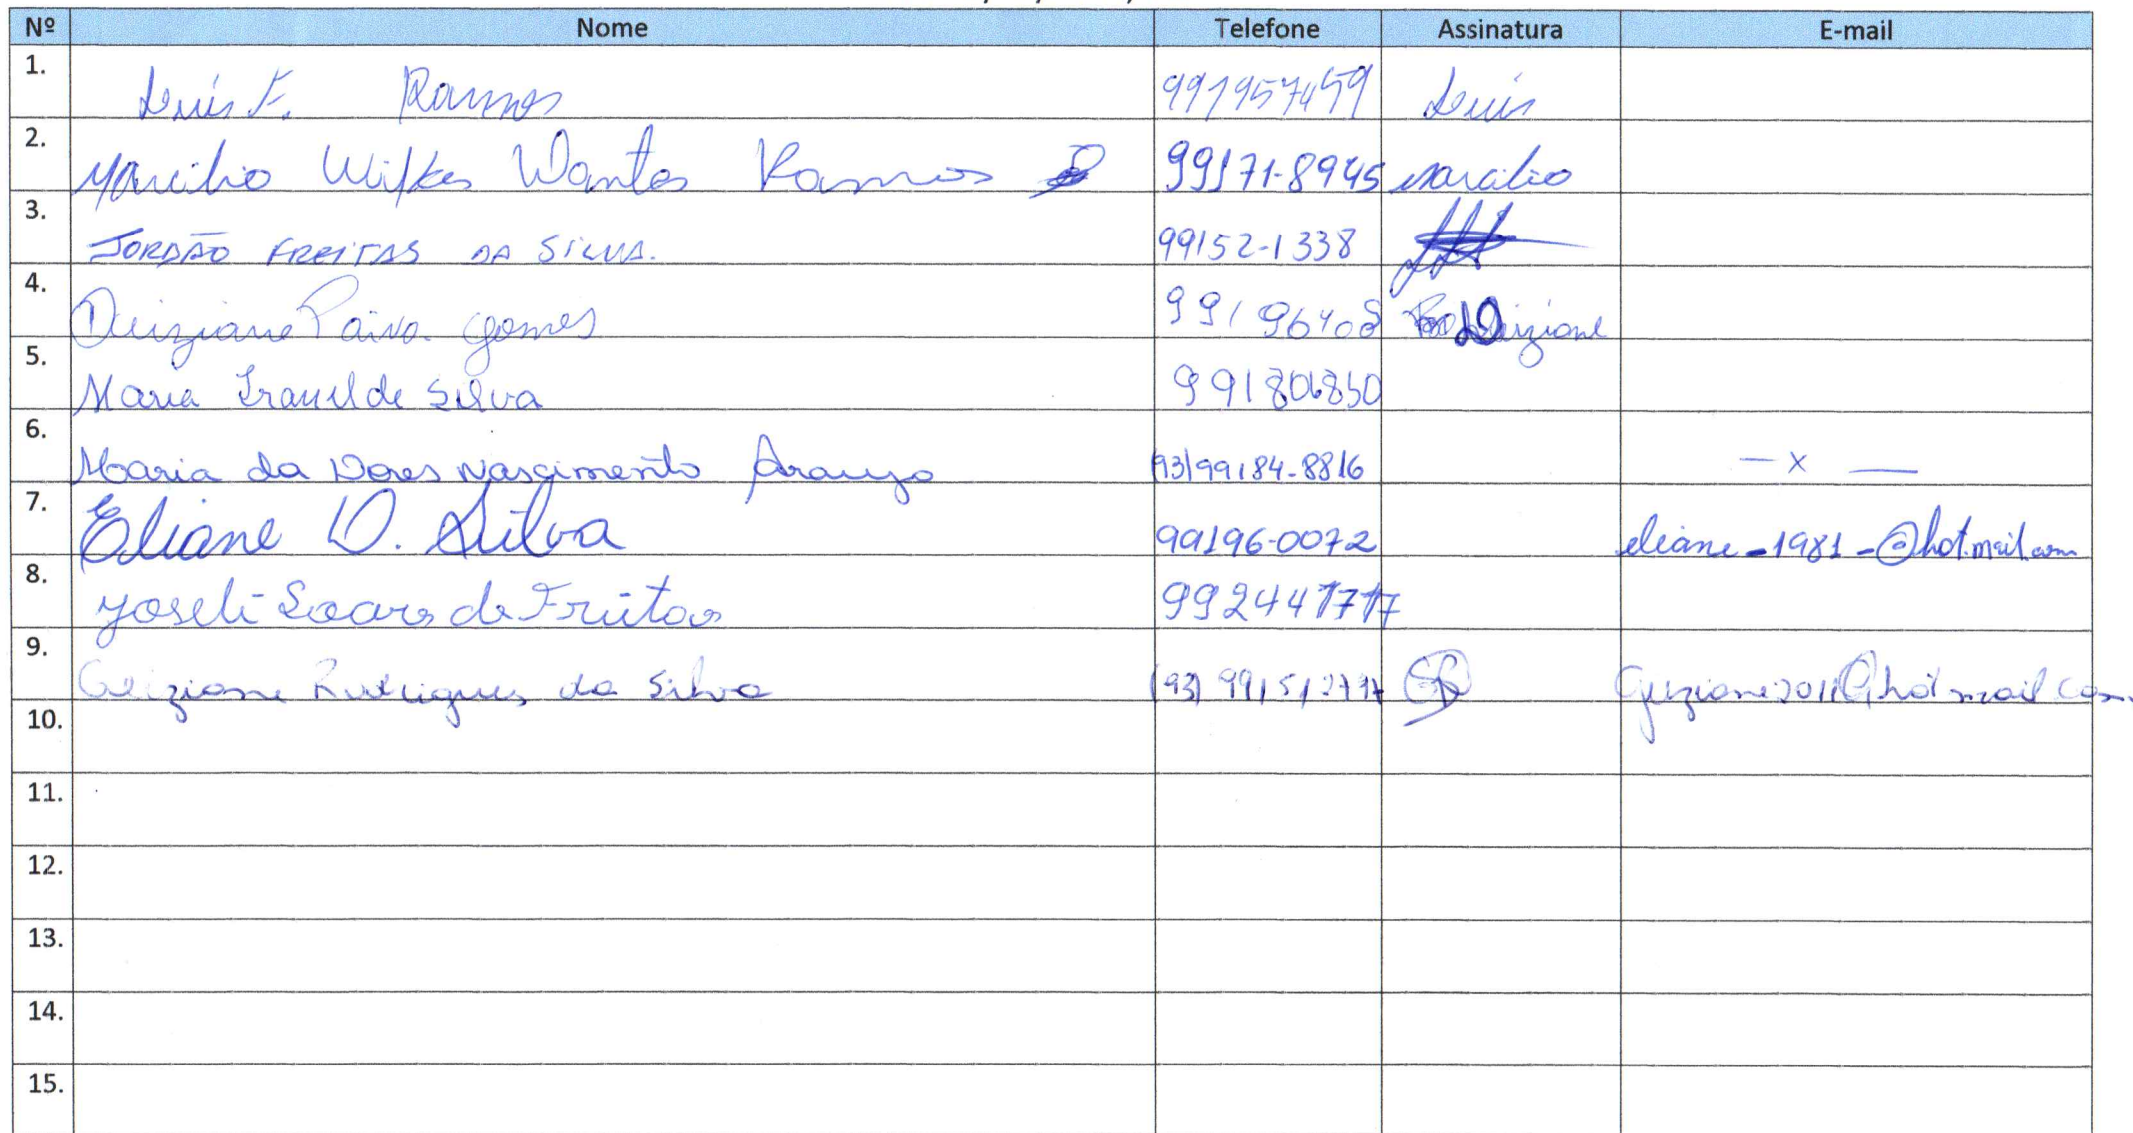 Nº Nome Telefone Assinatura E-mail
1. Luis F. Ramos 991957459 Luis
2. Marcilio Wilkes Dantas Ramos 99171-8945 Marcilio
3. JORDÃO FREITAS DA SILVA. 99152-1338
4. Deiziane Paiva Gomes 99196408 Deiziane
5. Maria Iranilde Silva 991806850
6. Maria da Dores Nascimento Araujo (93)99184-8816 — x —
7. Eliane D. Silva 99196-0072 eliane-1981-@hotmail.com
8. Joseli Soares de Freitas 992441717
9. Geiziane Rodrigues da Silva (93)
10.
11.
12.
13.
14.
15.